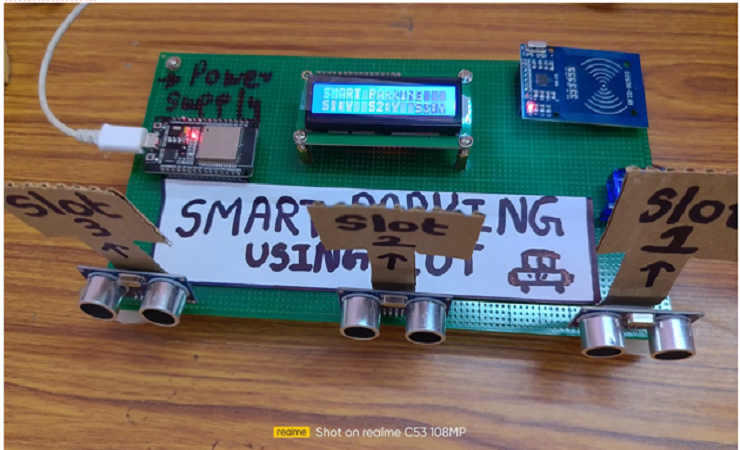 * Power
Supply
SMART PARKING
S1:V S2:V S3:V
RFID-RC522
SMART PARKING
USING IOT
Slot
3
Slot
2
Slot
1
realme Shot on realme C53 108MP